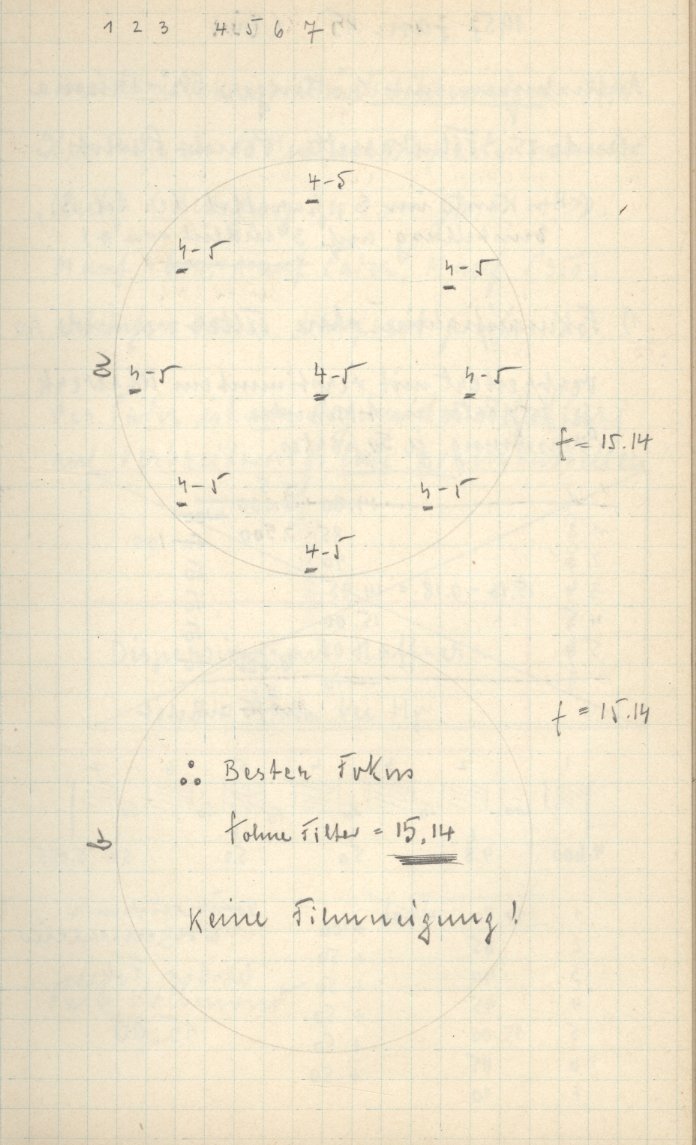 1 2 3 4 5 6 7
4-5
4-5
4-5
a
4-5 4-5 4-5
f = 15.14
4-5
4-5
4-5
f = 15.14
∴ Bester Fokus
b
f ohne Filter = 15,14
Keine Filmneigung!